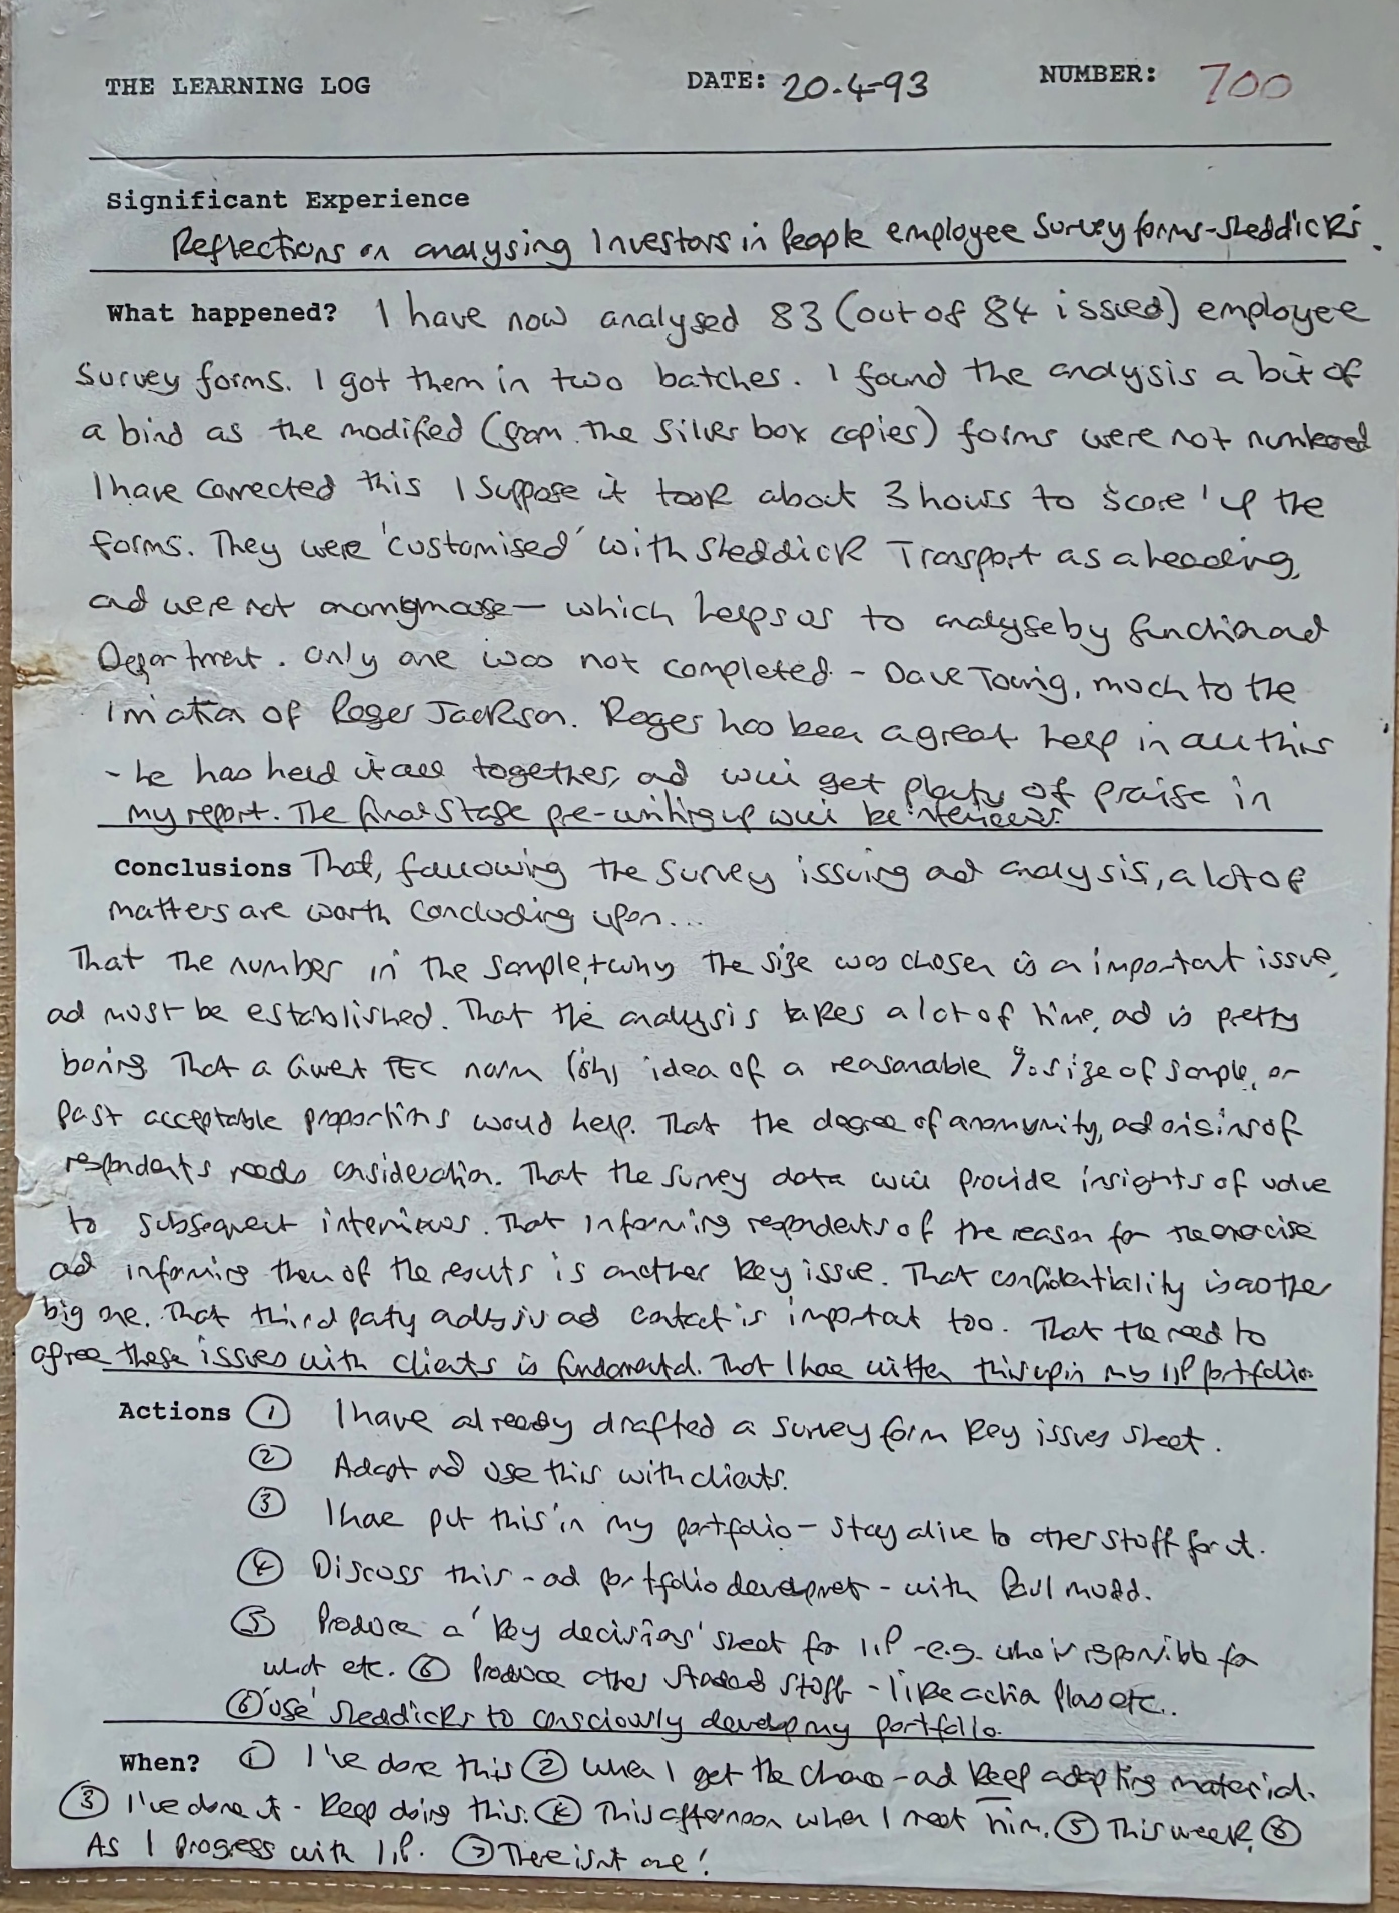 THE LEARNING LOG DATE: 20-4-93 NUMBER: 700
Significant Experience
Reflections on analysing Investors in People employee Survey forms - Sheddick's.
What happened? I have now analysed 83 (out of 84 issued) employee
Survey forms. I got them in two batches. I found the analysis a bit of
a bind as the modified (from the Silver box copies) forms were not numbered
I have corrected this I suppose it took about 3 hours to 'score' up the
forms. They were 'customised' with Sheddick Transport as a heading,
and were not - which helps us to analyse by functional
Department. Only one was not completed - Dave, much to the
irritation of Roger Jackson. Roger has been a great help in all this
- he has held it all together, and will get plenty of praise in
my report. The final stage pre-writing up will be interviews.
Conclusions That, following the survey issuing and analysis, a lot of
matters are worth concluding upon...
That the number in the sample, + why the size was chosen is an important issue,
and must be established. That the analysis takes a lot of time, and is pretty
boring That a Gwent TEC norm (ish) idea of a reasonable % size of sample, or
past acceptable proportions would help. That the degree of anonymity, and origins of
respondents needs consideration. That the survey data will provide insights of value
to subsequent interviews. That informing respondents of the reason for the exercise
and informing them of the results is another key issue. That confidentiality is another
big one. That third party analysis and contact is important too. That the need to
agree these issues with clients is fundamental. That I have written this up in my IIP portfolio
Actions ① I have already drafted a survey form key issues sheet.
② Adapt and use this with clients.
③ I have put this in my portfolio - stay alive to other stuff for it.
④ Discuss this - and portfolio development - with Paul Mudd.
⑤ Produce a 'key decisions' sheet for IIP - e.g. who is responsible for
what etc. ⑥ Produce other standard stuff - like action plans etc..
⑥ 'Use' Sheddicks to consciously develop my portfolio.
When? ① I've done this ② When I get the chance - and keep adapting material.
③ I've done it - keep doing this. ④ This afternoon when I meet him. ⑤ This week. ⑥
As I progress with IIP. ⑦ There isn't one!